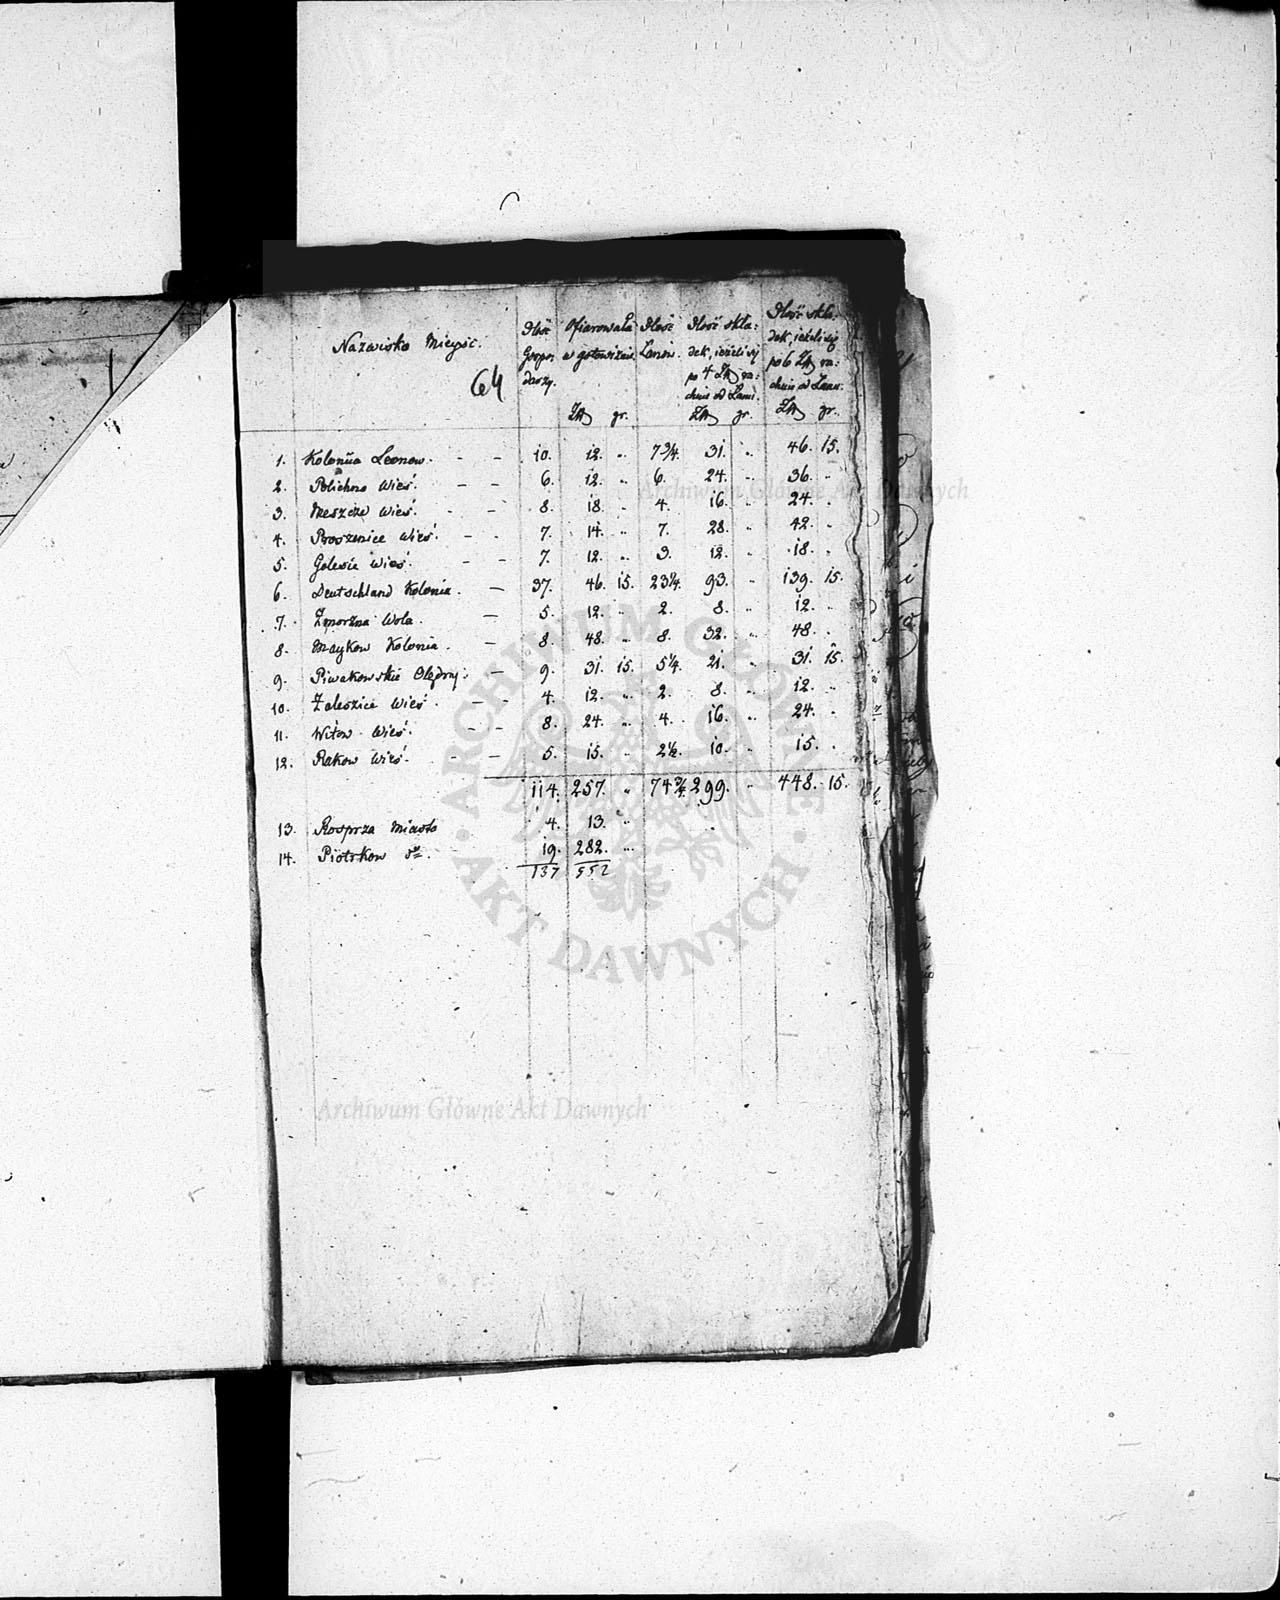 Nazwisko Mieysc.
64
Ilość Gospodarzy.
Ofiarowała w gotowiznie.
Złt gr.
Ilość Łanów.
Ilość skła: dek, ieżeli się po 4 Złt ra: chuie od Łanu.
Złt gr.
Ilość skła: dek, ieżeli się po 6 Złt ra: chuie od Łanu.
Złt gr.
1. Kolonia Leonow. - - 10. 12. " 7 3/4. 31. " 46. 15.
2. Polichno Wieś - - 6. 12. " 6. 24. " 36. "
3. Meszcze Wieś. - - 8. 18. " 4. 16. " 24. "
4. Proszenice Wieś. - - 7. 14. " 7. 28. " 42. "
5. Golesie Wieś. - - 7. 12. " 3. 12. " 18. "
6. Deutschland Kolonia. - 37. 46. 15. 23 1/4. 93. " 139. 15.
7. Zmorzna Wola. - 5. 12. " 2. 8. " 12. "
8. Maykow Kolonia. - 8. 48. " 8. 32. " 48. "
9. Piwakowskie Olędry. - 9. 31. 15. 5 1/4. 21. " 31. 15.
10. Zaleszice Wieś. - - 4. 12. " 2. 8. " 12. "
11. Witow Wieś. - - 8. 24. " 4. 16. " 24. "
12. Rakow Wieś. - - 5. 15. " 2 1/2. 10. " 15. "
114. 257. " 74 3/4. 299. " 448. 15.
13. Rosprza Miasto 4. 13. "
14. Piotrkow do. 19. 282. "
137 552
Archiwum Główne Akt Dawnych
ARCHIWUM GŁÓWNE · AKT DAWNYCH ·
Archiwum Główne Akt Dawnych